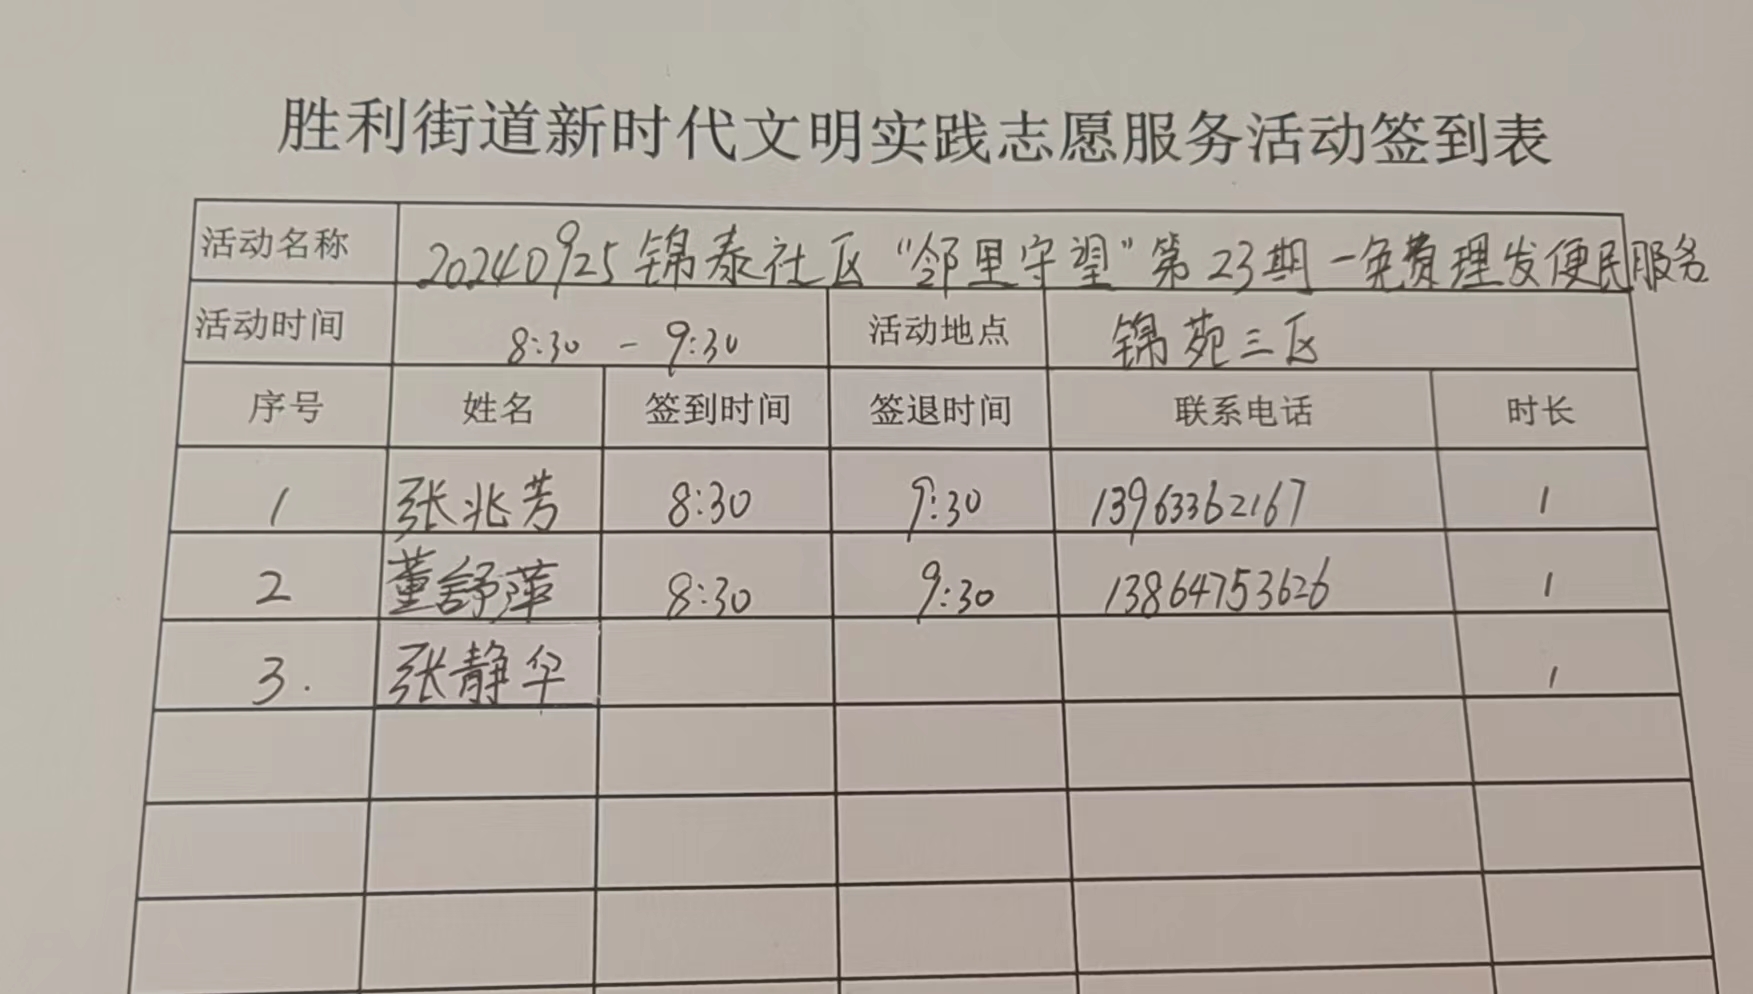 胜利街道新时代文明实践志愿服务活动签到表
活动名称 20240925锦泰社区“邻里守望”第23期-免费理发便民服务
活动时间 8:30 - 9:30 活动地点 锦苑三区
序号 姓名 签到时间 签退时间 联系电话 时长
1 张兆芳 8:30 9:30 13963362167 1
2 董舒萍 8:30 9:30 13864753626 1
3. 张静华 1